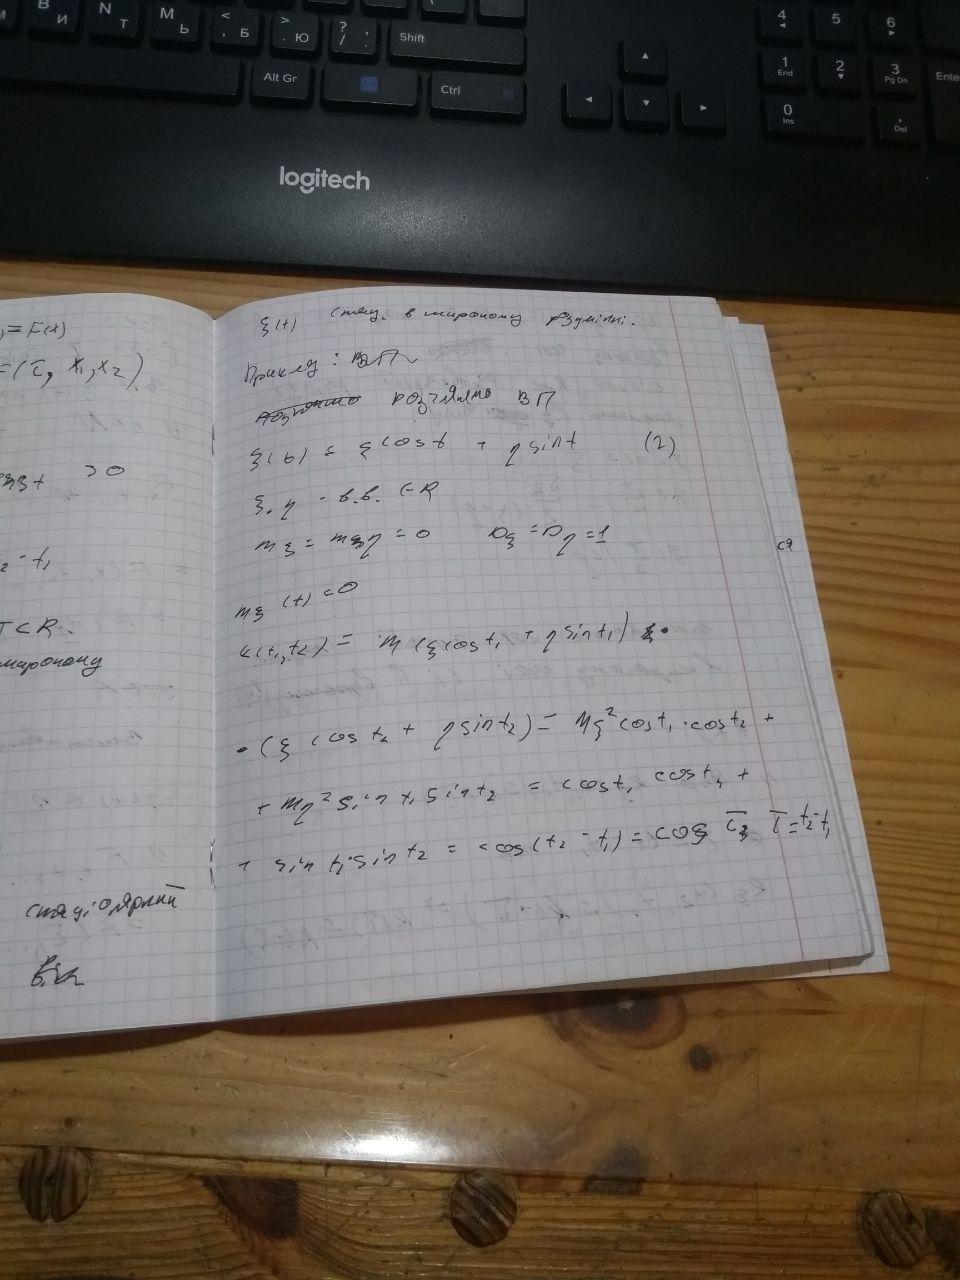 B И
N T
M Ь
< , Б
> . Ю
? / .
Shift
Alt Gr
Ctrl
4
5
6
1 End
2
3 Pg Dn
Enter
0 Ins
. Del
logitech
= F(x)
=(τ, x₁, x₂)
> 0
₂ - t₁
T ⊂ R.
широкому
стаціонарний
ξ(t) стац. в широкому розумінні.
Приклад: ВП
Розглянемо ВП
ξ(t) = ξ cos t + η sin t (2)
ξ, η - в.в. ∈ R
mξ = mη = 0 Dξ = Dη = 1
mξ(t) = 0
k(t₁, t₂) = M(ξ cos t₁ + η sin t₁) •
• (ξ cos t₂ + η sin t₂) = Mξ² cos t₁ · cos t₂ +
+ Mη² sin t₁ sin t₂ = cos t₁ cos t₂ +
+ sin t₁ · sin t₂ = cos(t₂ - t₁) = cos τ, τ = t₂ - t₁
ся